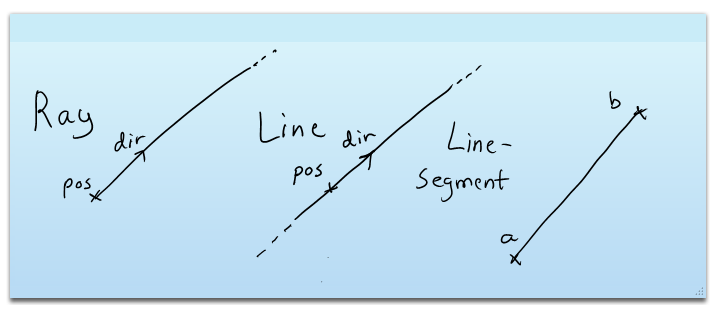 Ray
dir
pos
Line
dir
pos
Line-
segment
b
a